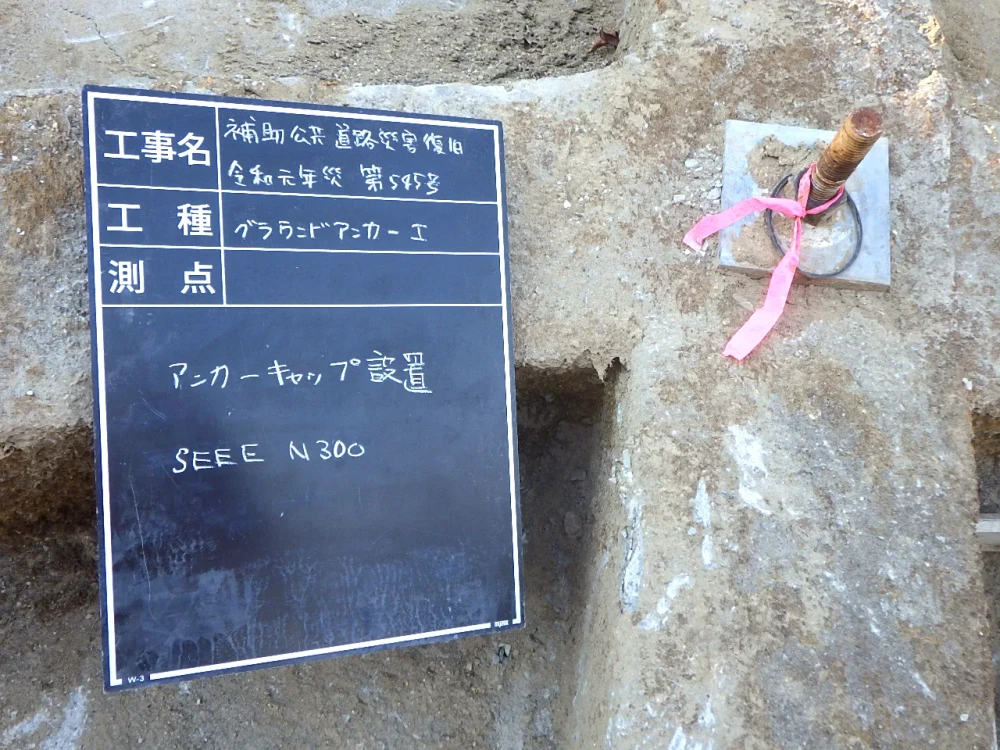 工事名 補助公共 道路災害復旧
令和元年災 第545号
工種 グラウンドアンカー工
測点
アンカーキャップ設置
SEEE N300
W-3